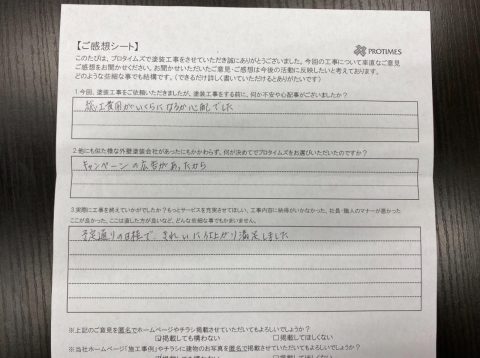 【ご感想シート】
PROTIMES
このたびは、プロタイムズで塗装工事をさせていただき誠にありがとうございました。今回の工事について率直なご意見
ご感想をお聞かせください。お聞かせいただいたご意見・ご感想は今後の活動に反映したいと考えております。
どのような些細な事でも結構です。（できるだけ詳しく書いていただけるとありがたいです）
1.今回、塗装工事をご依頼いただきましたが、塗装工事をする前に、何か不安や心配事がございましたか？
総工費用がいくらになるか心配でした
2.他にも似た様な外壁塗装会社があったにもかかわらず、何が決めてでプロタイムズをお選びいただいたのですか？
キャンペーンの広告があったから
3.実際に工事を終えていかがでしたか？もっとサービスを充実させてほしい、工事内容に納得がいかなかった、社長・職人のマナーが悪かった
ここが良かった、ここは直した方が良いなど、どんな些細な事でもかまいません。
予定通りの日程で、きれいに仕上がり満足しました
※上記のご意見を匿名でホームページやチラシ掲載させていただいてもよろしいでしょうか？
掲載しても構わない
□掲載してほしくない
※当社ホームページ「施工事例」やチラシに建物のお写真を匿名で掲載させていただいてもよろしいでしょうか？
掲載しても構わない
□掲載してほしくない